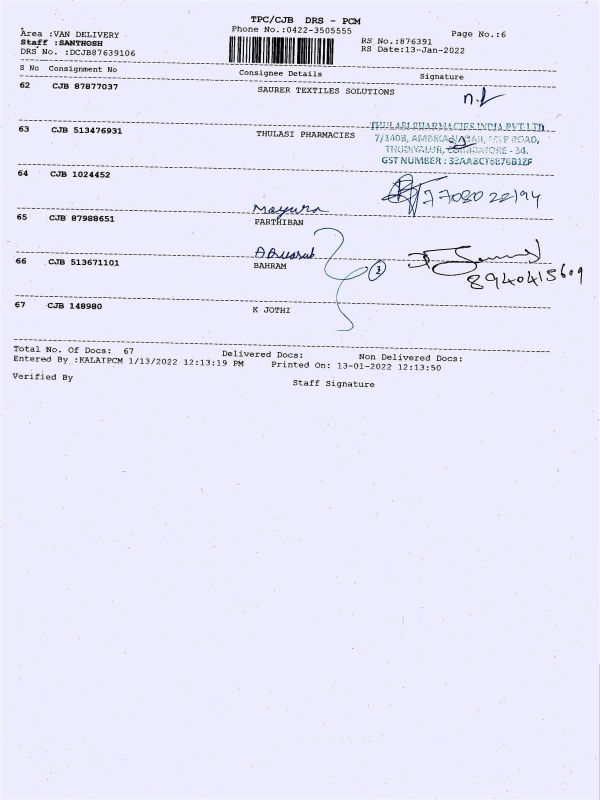 TPC/CJB DRS - PCM
Area :VAN DELIVERY Phone No.:0422-3505555 Page No.:6
Staff :SANTHOSH RS No.:876391
DRS No. :DCJB87639106 RS Date:13-Jan-2022
S No Consignment No Consignee Details Signature
62 CJB 87877037 SAURER TEXTILES SOLUTIONS
63 CJB 513476931 THULASI PHARMACIES
THULASI PHARMACIES INDIA PVT LTD
7/140B, AMBIKA NAGAR, ROAD,
THUDIYALUR, COIMBATORE - 34.
GST NUMBER :
64 CJB 1024452
Mayura
65 CJB 87988651 PARTHIBAN
66 CJB 513671101 BAHRAM
8940415609
67 CJB 148980 K JOTHI
Total No. Of Docs: 67 Delivered Docs: Non Delivered Docs:
Entered By :KALAIPCM 1/13/2022 12:13:19 PM Printed On: 13-01-2022 12:13:50
Verified By Staff Signature